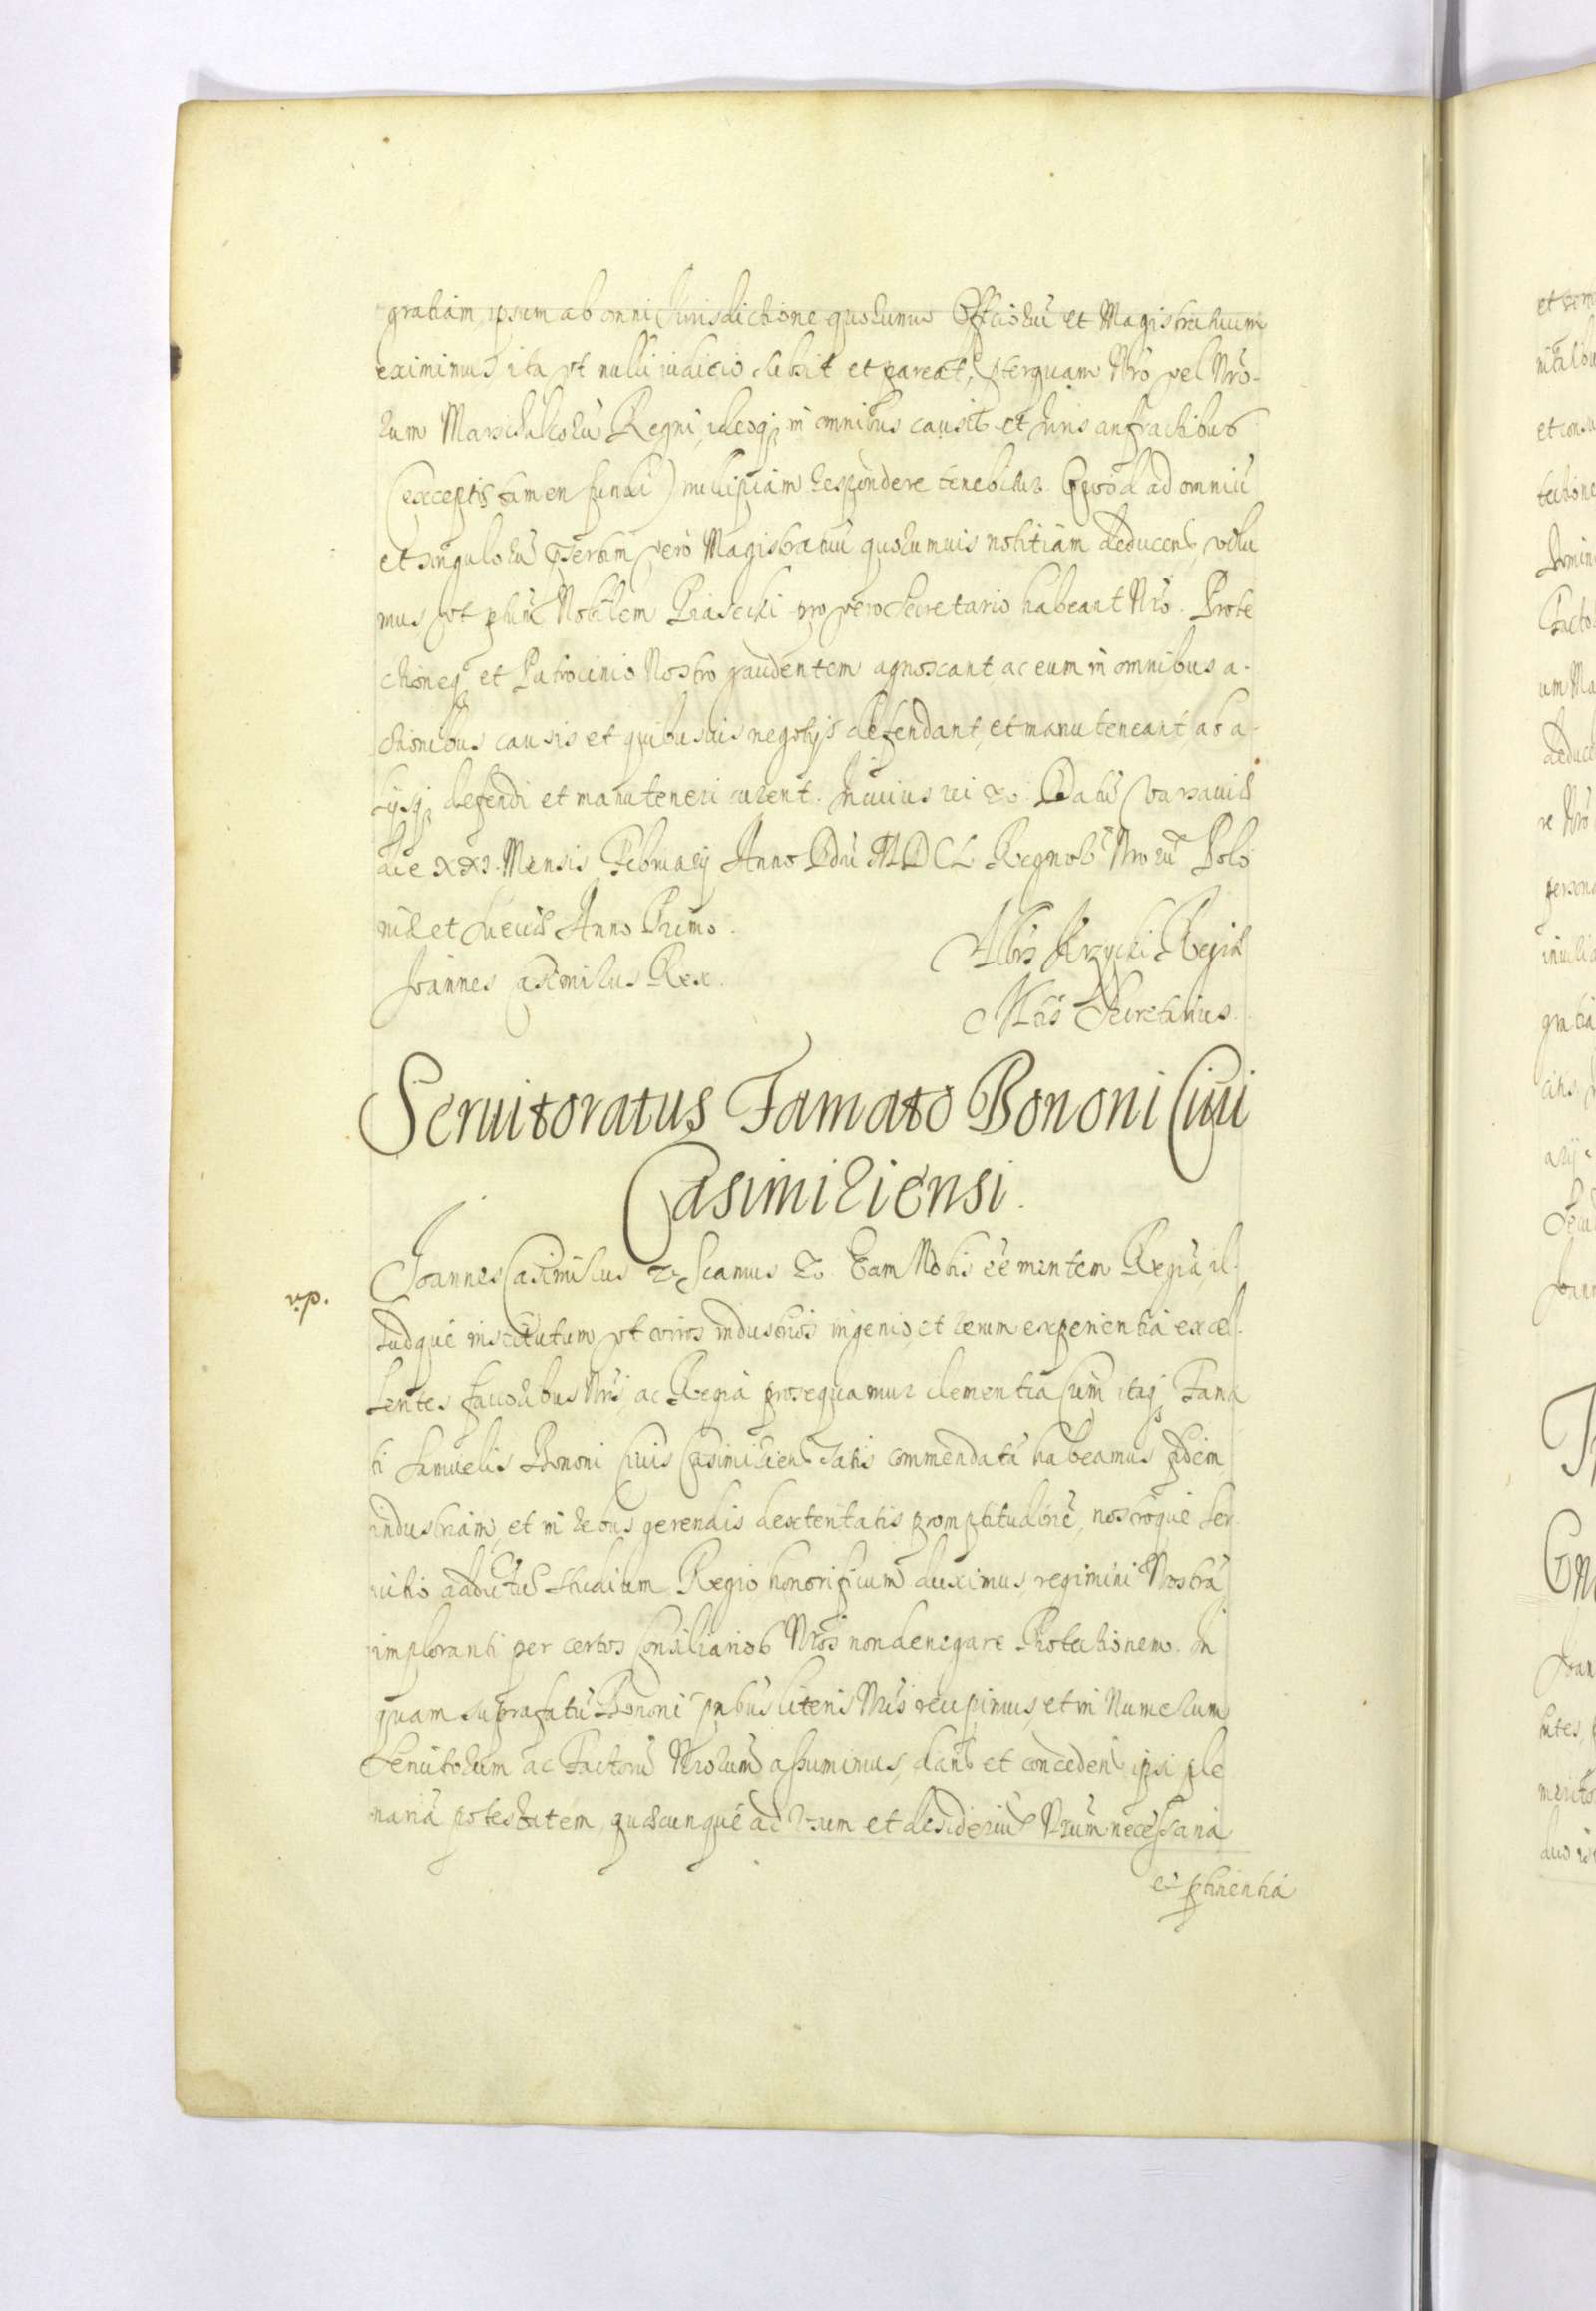 gratiam, ipsum ab omni Jurisdictione quorumuis Officiorũ et Magistratuum
eximimus ita vt nulli iudicio subsit et pareat, pterquam Nro vel Nro-
rum Marschalcorũ Regni, ideoq; in omnibus causis et Juris anfractibus
(exceptis tamen fundi) nullipiam respondere tenebitur. Quod ad omniũ
et singulorũ psertim vero Magistratuũ quorumuis notitiam deducen, volu
mus vt phim̃ Nobilem Piasecki pro vero Secretario habeant Nro. Prote
ctioneq; et Patrocinio Nostro gaudentem agnoscant, ac eum in omnibus a-
ctionibus causis et quibusuis negotijs defendant, et manuteneant, ab a-
lijsq; defendi et manuteneri curent. In cuius rei &. Datũ Varsauiæ
die XXI. Mensis Februarij Anno Dñi MDCL Regnorũ Nrorũ Polo
niæ et Sueciæ Anno Primo.
Joannes Casimirus Rex.
Albrs Krzycki Regiæ
Mttis Secretarius.
Seruitoratus Famato Bononi Ciui
Casimiriensi.
Joannes Casimirus &. Scamus &. Eam Nobis eẽ mentem Regiã, il-
v.p.
ludque institutum, vt viros industrios ingenio, et rerum experientia excel-
lentes fauoribus Nris, ac Regia prosequamur clementia Cum itaq; Fama
ti Samuelis Bononi Ciuis Casimirien satis commendatã habeamus fidem
industriam, et in rebus gerendis dexteritatis promptitudinẽ, nostroque ser
uitio addictũ studium Regio honorificum duximus, regimini Nostrã
imploranti per certos Consiliarios Nros non denegare Protectionem. In
quam suprafatũ Bononi pntibus literis Nris recipimus, et in Numerum
Seruitorum ac Factorũ Nrorum assumimus, dan et conceden ipsi ple
nariã potestatem, quæcunque ad Vsum et desideriũ Nrum necessaria
et ptinentia